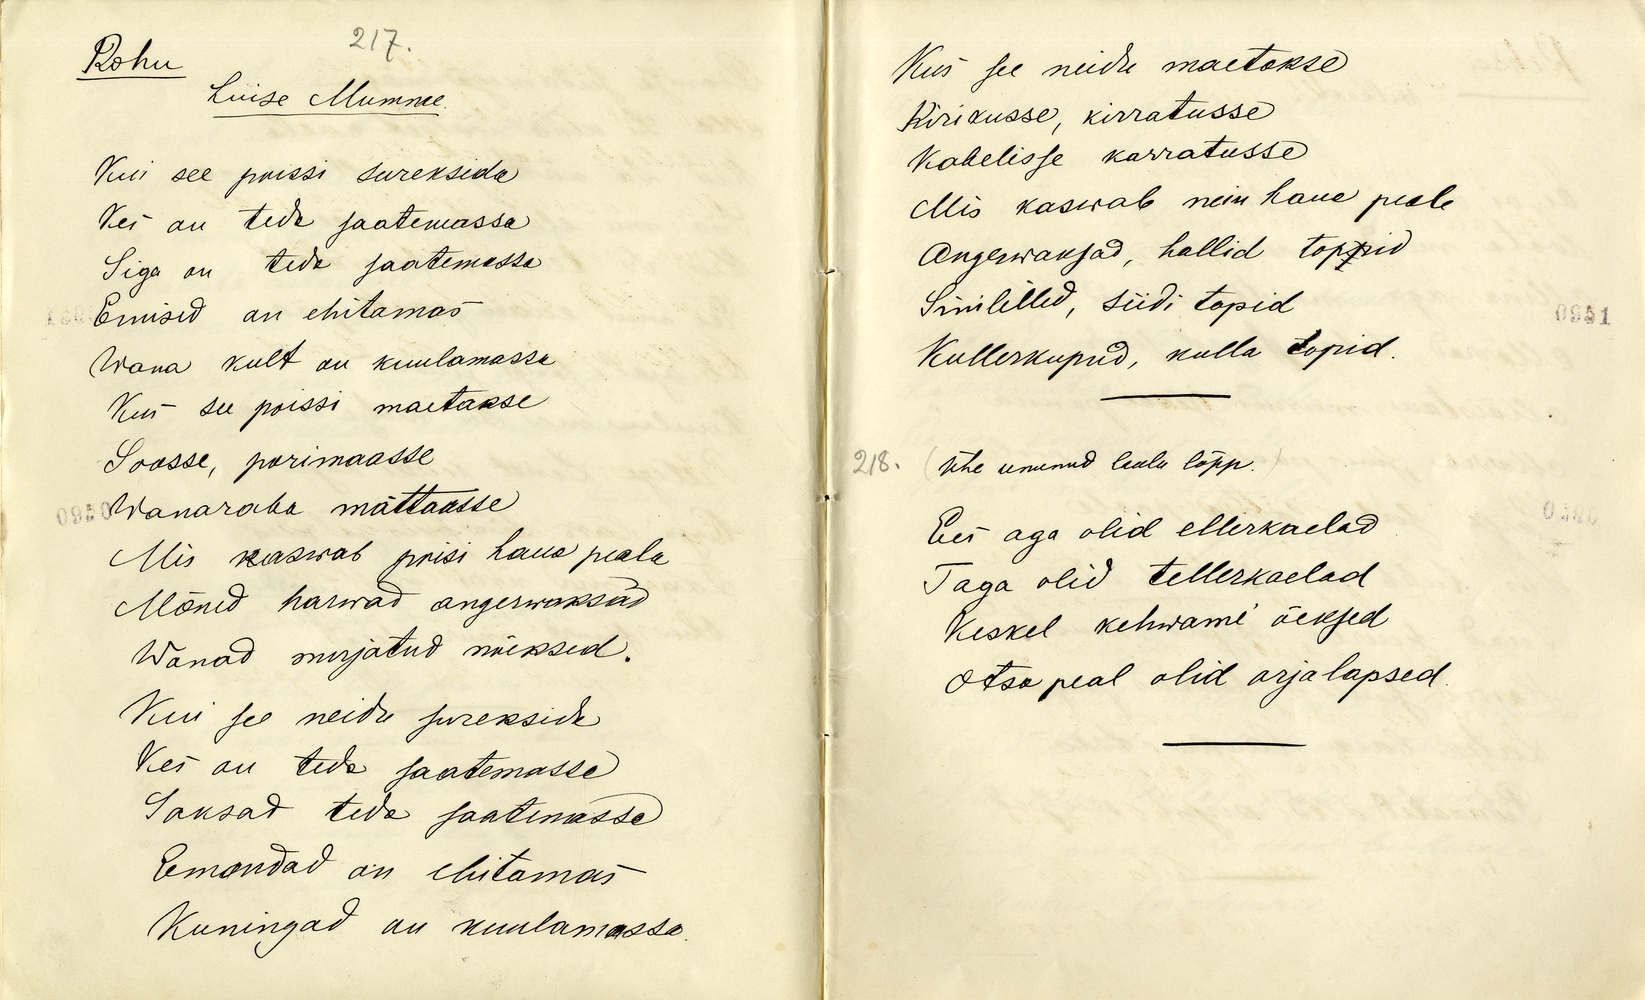 217.
Rohu
Luise Mumme.
Kui see poissi sureksida
Kes on teda saatemassa
Siga on teda saatemassa
Emised on ehitamas
Wana kult on kuulamassa
Kus see poissi maetakse
Soosse, porimaasse
Wanaraba mättaasse
Mis kaswab poisi haua peale
Mõned harwad angerwaksad
Wanad murjatud nõeksed.
Kui see neidu sureksida
Kes on teda saatemassa
Saksad teda saatemassa
Emandad on ehitamas
Kuningad on kuulamassa.
0950
Kus see neidu maetakse
Kirikusse, kirratusse
Kabelisse karratusse
Mis kaswab neiu haua peale
Angerwaksad, hallid toppid
Sinililled, siidi topid
Kullerkupud, kulla topid.
0951
218. (Ühe ununud laulu lõpp.)
Ees aga olid ellerkaelad
Taga olid tellerkaelad
Keskel kehwami õeksed
Otsa peal olid orjalapsed.